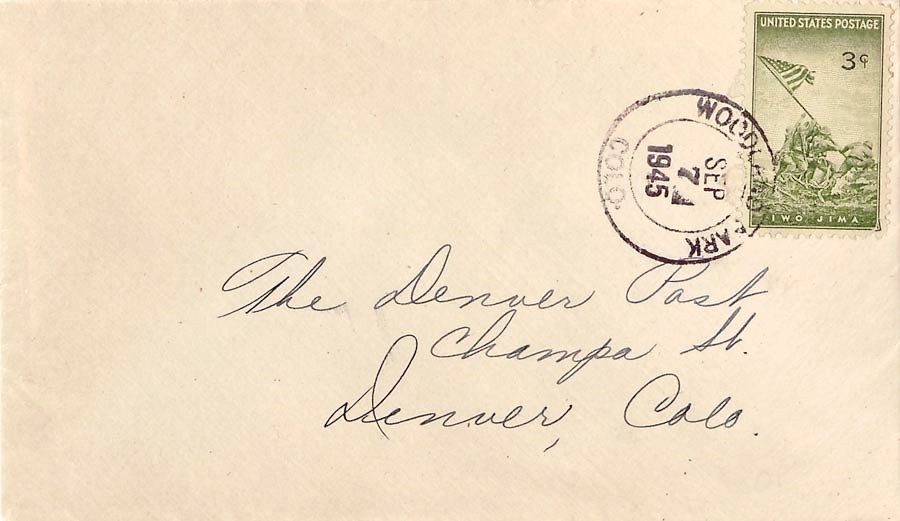 UNITED STATES POSTAGE
3¢
IWO JIMA
WOODLAND PARK
COLO.
SEP
7
1945
The Denver Post
Champa St.
Denver, Colo.